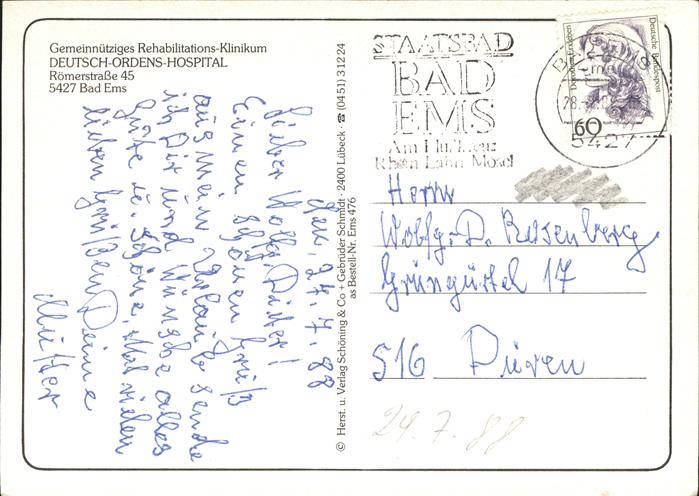 Gemeinnütziges Rehabilitations-Klinikum
DEUTSCH-ORDENS-HOSPITAL
Römerstraße 45
5427 Bad Ems
den, 24.7.88
Lieber Wolfg. Dieter!
Einen schönen Gruß
aus mein Urlaub sende
ich Dir und Wünsche alles
Gute u. Schöne, Mit vielen
lieben Grüßen Deine
Mutter
© Herst. u. Verlag Schöning & Co + Gebrüder Schmidt · 2400 Lübeck · ☎ (04 51) 3 12 24
as Bestell-Nr. Ems 476
STAATSBAD
BAD
EMS
Am Flußkreuz
Rhein Lahn Mosel
BAD EMS
28.
5427
Dorothea Erxleben
Deutsche Bundespost
60
Herrn
Wolfg. D. Rosenberg
Grüngürtel 17
516 Düren
24.7.88